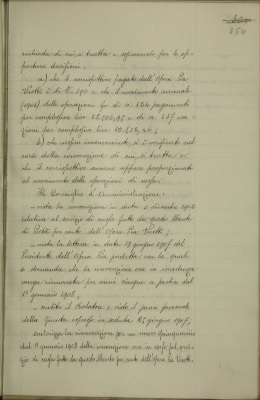 richiesta di cui si tratta e esponendo per le op-
portune decisioni:
a) che il corrispettivo pagato dall'Opera Pia
di L. e che il movimento annuale
(1906) delle operazioni fu di n. pagamenti
per complessive Lire e di n. 257
zioni per complessive Lire
b) che nessun inconveniente si è verificato nel
corso della convenzione di cui si tratta e
che il corrispettivo annuo appare proporzionato
al movimento delle operazioni di cassa.
Il Consiglio d'Amministrazione:
vista la convenzione in data 2 dicembre 1902
relativa al servizio di cassa fatto da questo Monte
di Pietà per conto dell'Opera Pia
vista la lettera in data 19 giugno 1907 del
Presidente dell'Opera Pia predetta con la quale
si domanda che la convenzione ora in scadenza
venga rinnovata per anni cinque a partire dal
1° gennaio 1908;
sentito il Relatore e visto il parere favorevole
della Giunta espresso in seduta 25 giugno 1907,
autorizza la rinnovazione per un nuovo quinquennio
dal 1° gennaio 1908 della convenzione ora in corso pel servi-
zio di cassa fatto da questo Monte per conto dell'Opera Pia